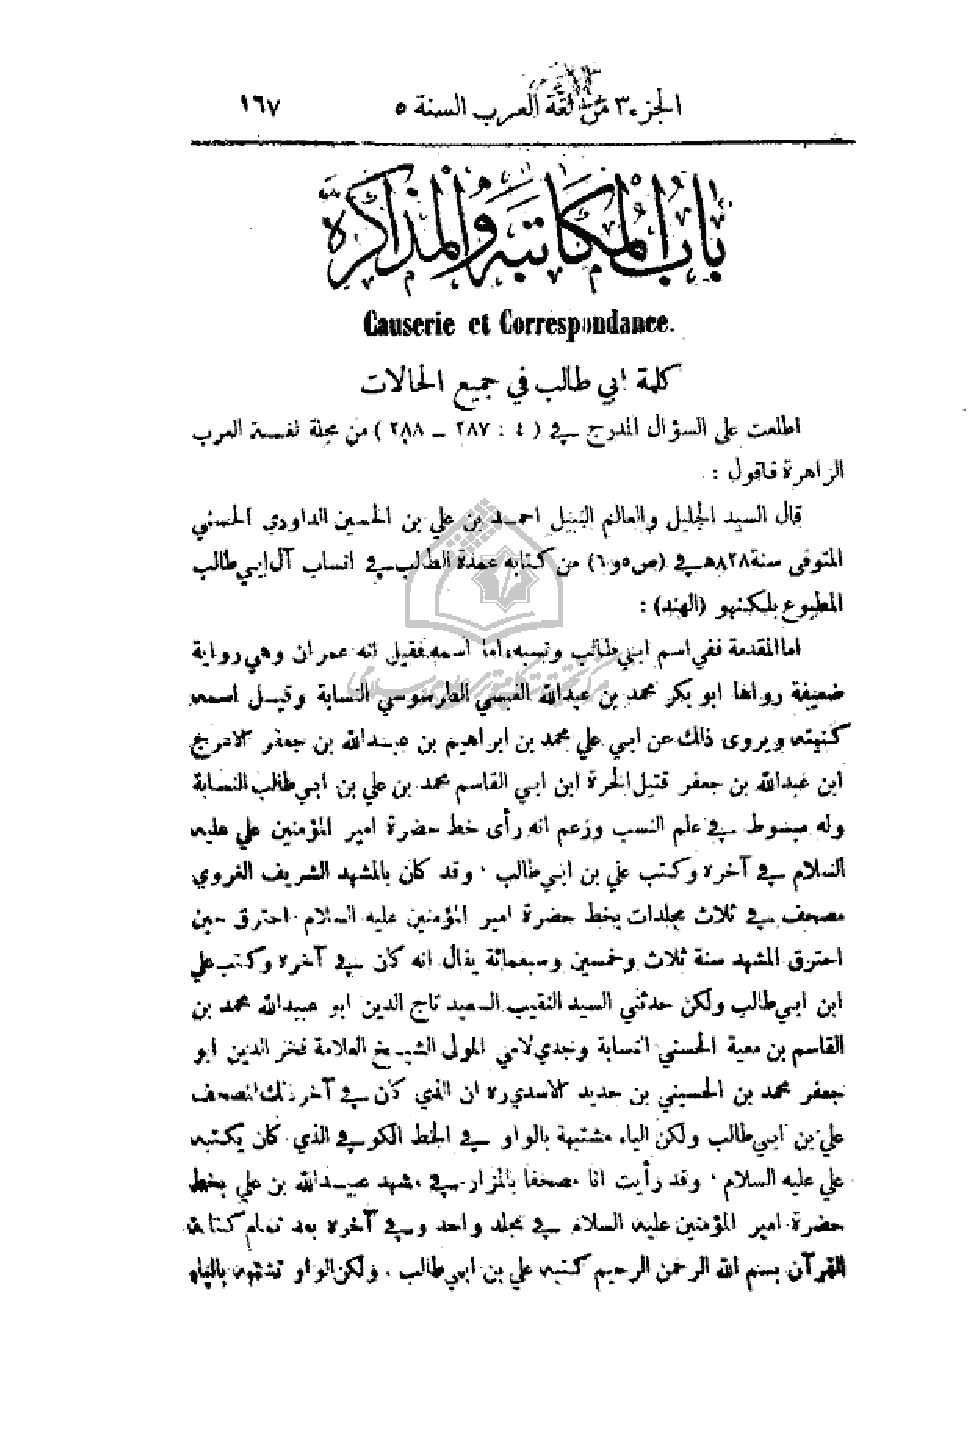 الجزء ٣ من لغة العرب السنة ٥ ١٦٧
باب المكاتبة والمذاكرة
Causerie et Correspondance.
كلمة ابي طالب في جميع الحالات
اطلعت على السؤال المدرج في ( ٤ : ٢٨٧ – ٢٨٨ ) من مجلة لغة العرب
الزاهرة فاقول :
قال السيد الجليل والعالم النبيل احمد بن علي بن الحسين الداودي الحسني
المتوفى سنة ٨٢٨هـ في (ص٥و٦) من كتابه عمدة الطالب في انساب آل ابي طالب
المطبوع بلكنهو (الهند) :
اما المقدمة ففي اسم ابي طالب ونسبه، اما اسمه فقيل انه عمران وهي رواية
ضعيفة رواها ابو بكر محمد بن عبدالله العبسي الطرسوسي النسابة وقيل اسمه
كنيته ويروى ذلك عن ابي علي محمد بن ابراهيم بن عبدالله بن جعفر الاعرج
ابن عبدالله بن جعفر قتيل الحرة ابن ابي القاسم محمد بن علي بن ابي طالب النسابة
وله مبسوط في علم النسب وزعم انه رأى خط حضرة امير المؤمنين علي عليه
السلام في آخره وكتب علي بن ابي طالب . وقد كان بالمشهد الشريف الغروي
مصحف في ثلاث مجلدات بخط حضرة امير المؤمنين عليه السلام احترق حين
احترق المشهد سنة ثلاث وخمسين وسبعمائة يقال انه كان في آخره وكتب علي
ابن ابي طالب ولكن حدثني السيد النقيب السعيد تاج الدين ابو عبيدالله محمد بن
القاسم بن معية الحسني النسابة وجدي لامي المولى الشيخ العلامة فخر الدين ابو
جعفر محمد بن الحسيني بن حديد الاسدي ره ان الذي كان في آخر ذلك المصحف
علي بن ابي طالب ولكن الياء مشتبهة بالواو في الخط الكوفي الذي كان يكتبه
علي عليه السلام . وقد رأيت انا مصحفا بالمزار في مشهد عبيدالله بن علي بخط
حضرة امير المؤمنين عليه السلام في مجلد واحد وفي آخره بعد تمام كتابة
القرآن بسم الله الرحمن الرحيم كتبه علي بن ابي طالب . ولكن الواو تشتبه بالياء